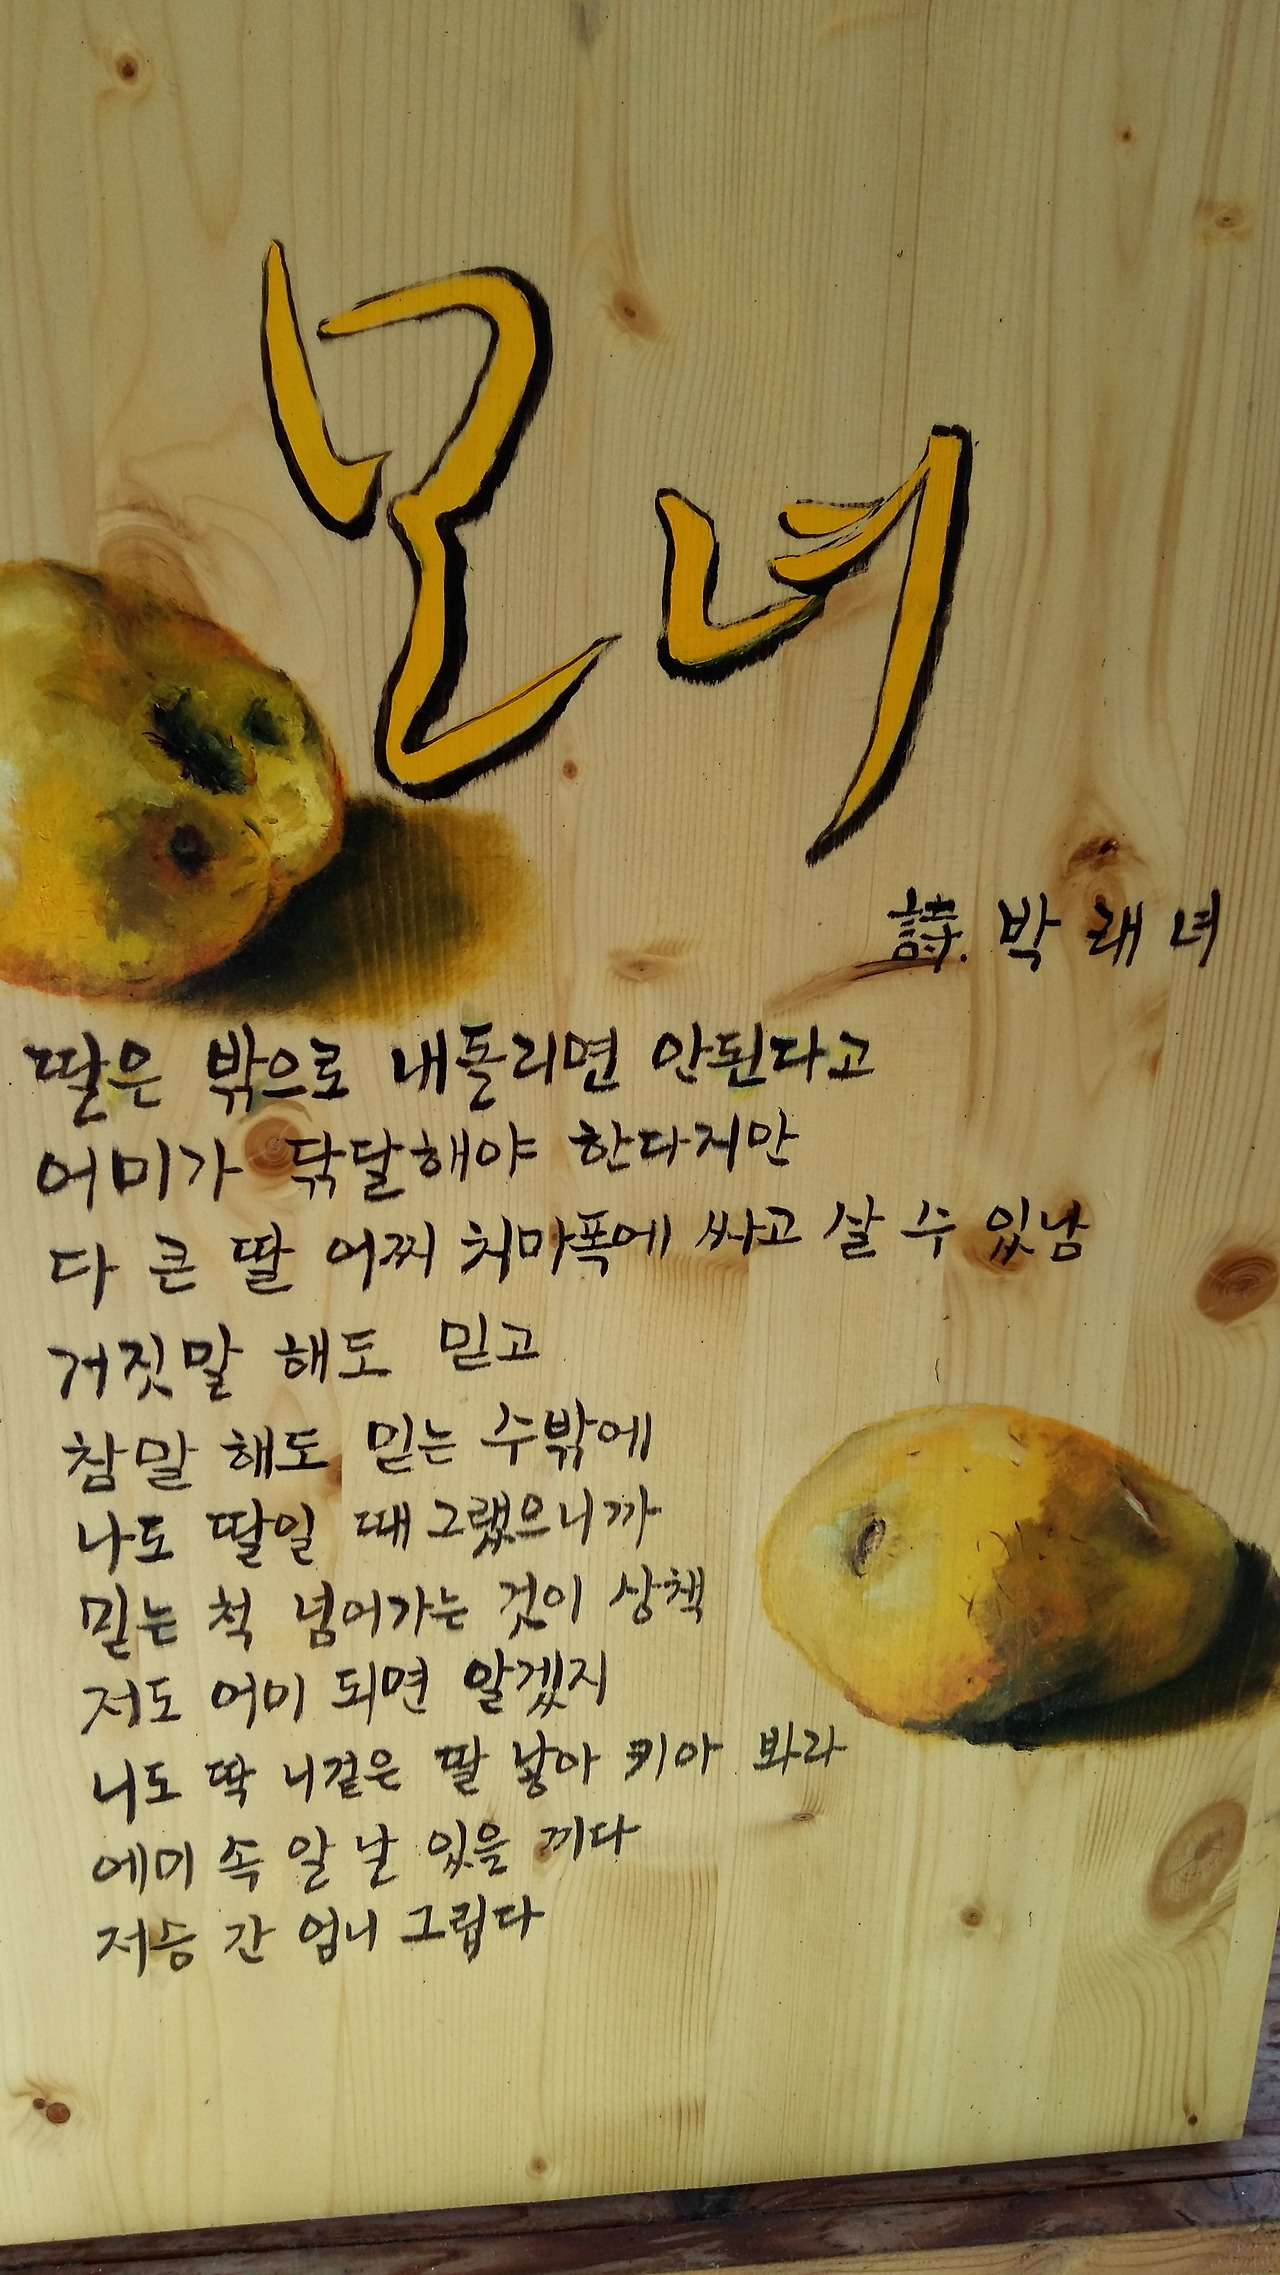 모녀
詩. 박래녀
딸은 밖으로 내돌리면 안된다고
어미가 닦달해야 한다지만
다 큰 딸 어찌 치마폭에 싸고 살 수 있남
거짓말 해도 믿고
참말 해도 믿는 수밖에
나도 딸일 때 그랬으니까
믿는 척 넘어가는 것이 상책
저도 어미 되면 알겠지
니도 딱 니겉은 딸 낳아 키아 봐라
에미 속 알 날 있을 끼다
저승 간 엄니 그립다